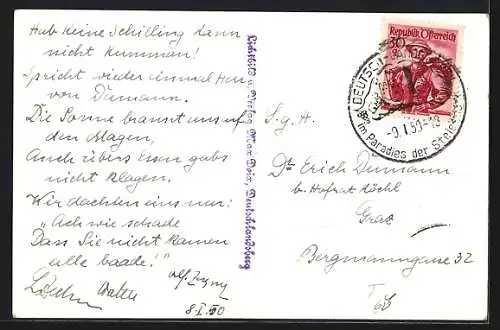 Hab keine Schilling dann
nicht kumman!
Spricht wieder einmal Herr
von Dumann.
Die Sonne brannt uns auf
den Magen,
Auch übers Essen gabs
nicht klagen.
Wir dachten uns nur:
"Ach wie schade
Dass Sie nicht kamen
alle baade!"
8. I. 50
Lichtbild u. Verlag Max Boix, Deutschlandsberg
Republik Österreich
30
im Paradies der
-9. I. 50-
S. g. H.
Dr Erich Dumann
b. Hofrat Köchl
Graz
Bergmanngasse 32